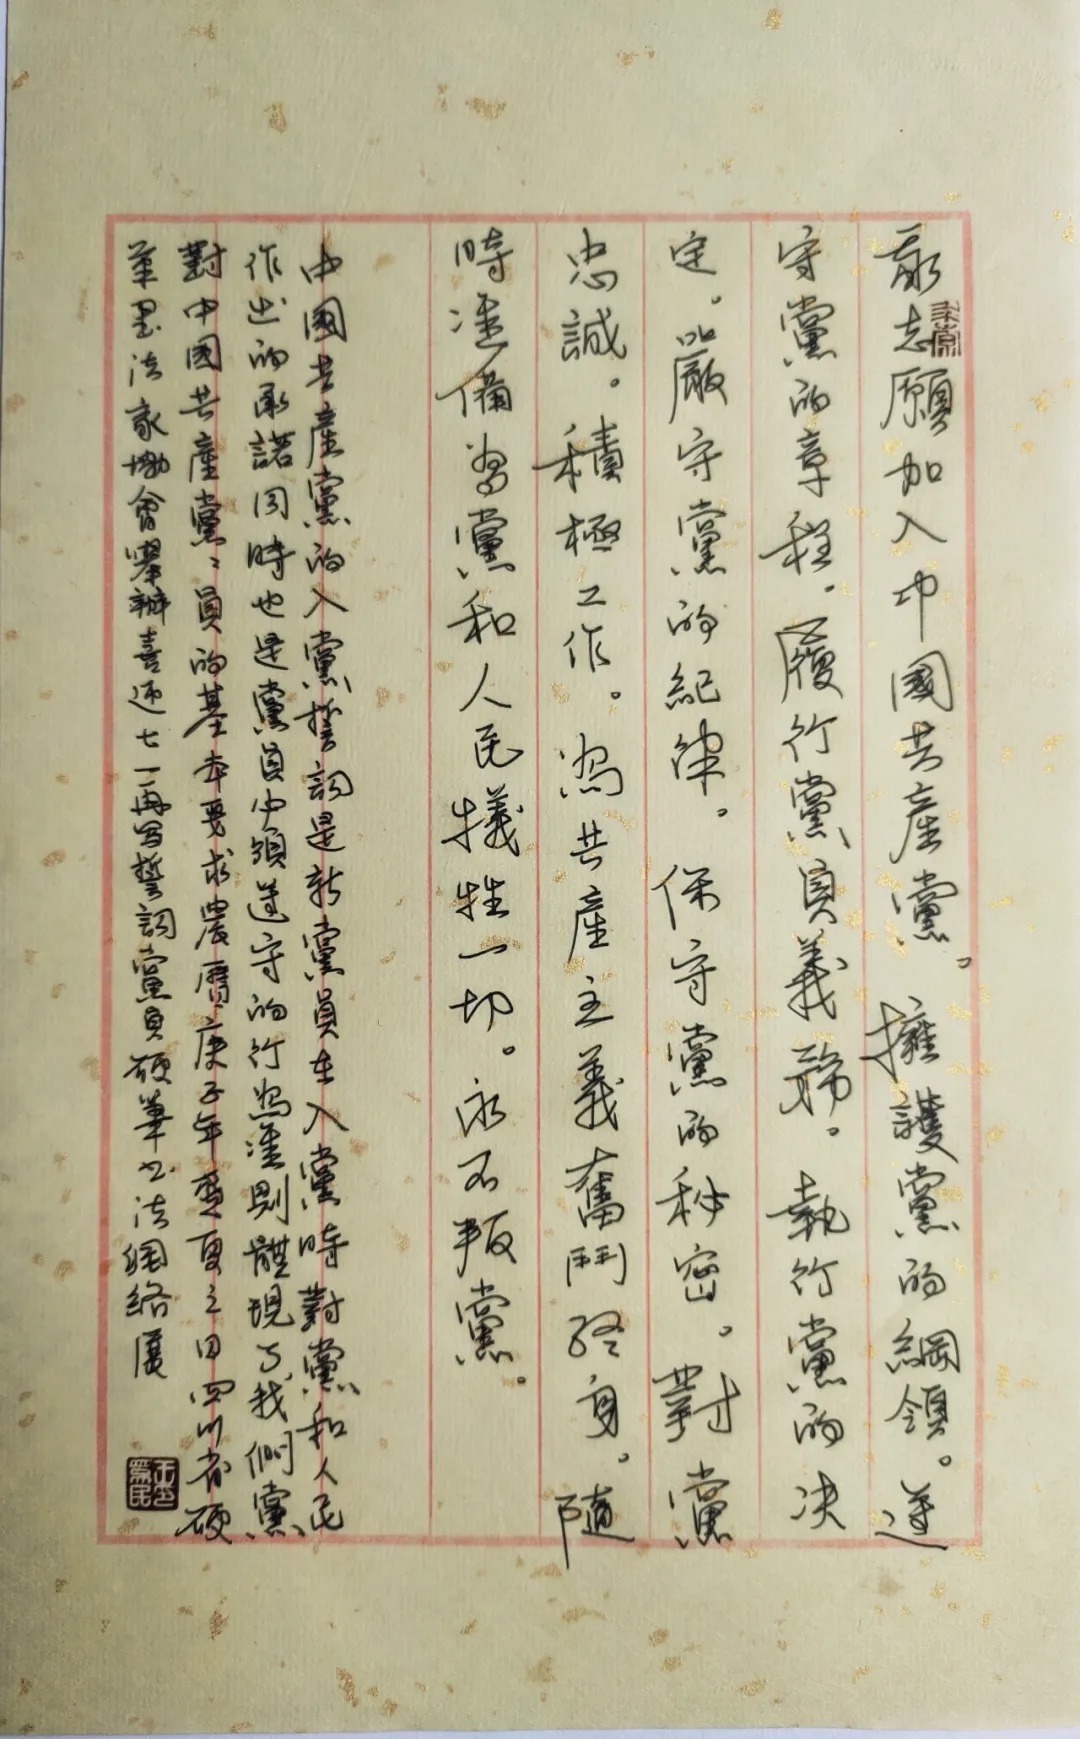 我志願加入中國共産黨。擁護黨的綱領。遵
守黨的章程。履行黨員義務。執行黨的决
定。嚴守黨的紀律。保守黨的秘密。對黨
忠誠。積極工作。為共産主義奮鬥終身。隨
時準備為黨和人民犧牲一切。永不叛黨。
中國共産黨的入黨誓詞是新黨員在入黨時對黨和人民
作出的承諾同時也是黨員必須遵守的行為準則體現了我們黨
對中國共産黨〻員的基本要求農曆庚子年盛夏之日四川省硬
筆書法家協會舉辦喜迎七一再寫誓詞黨員硬筆書法網絡展